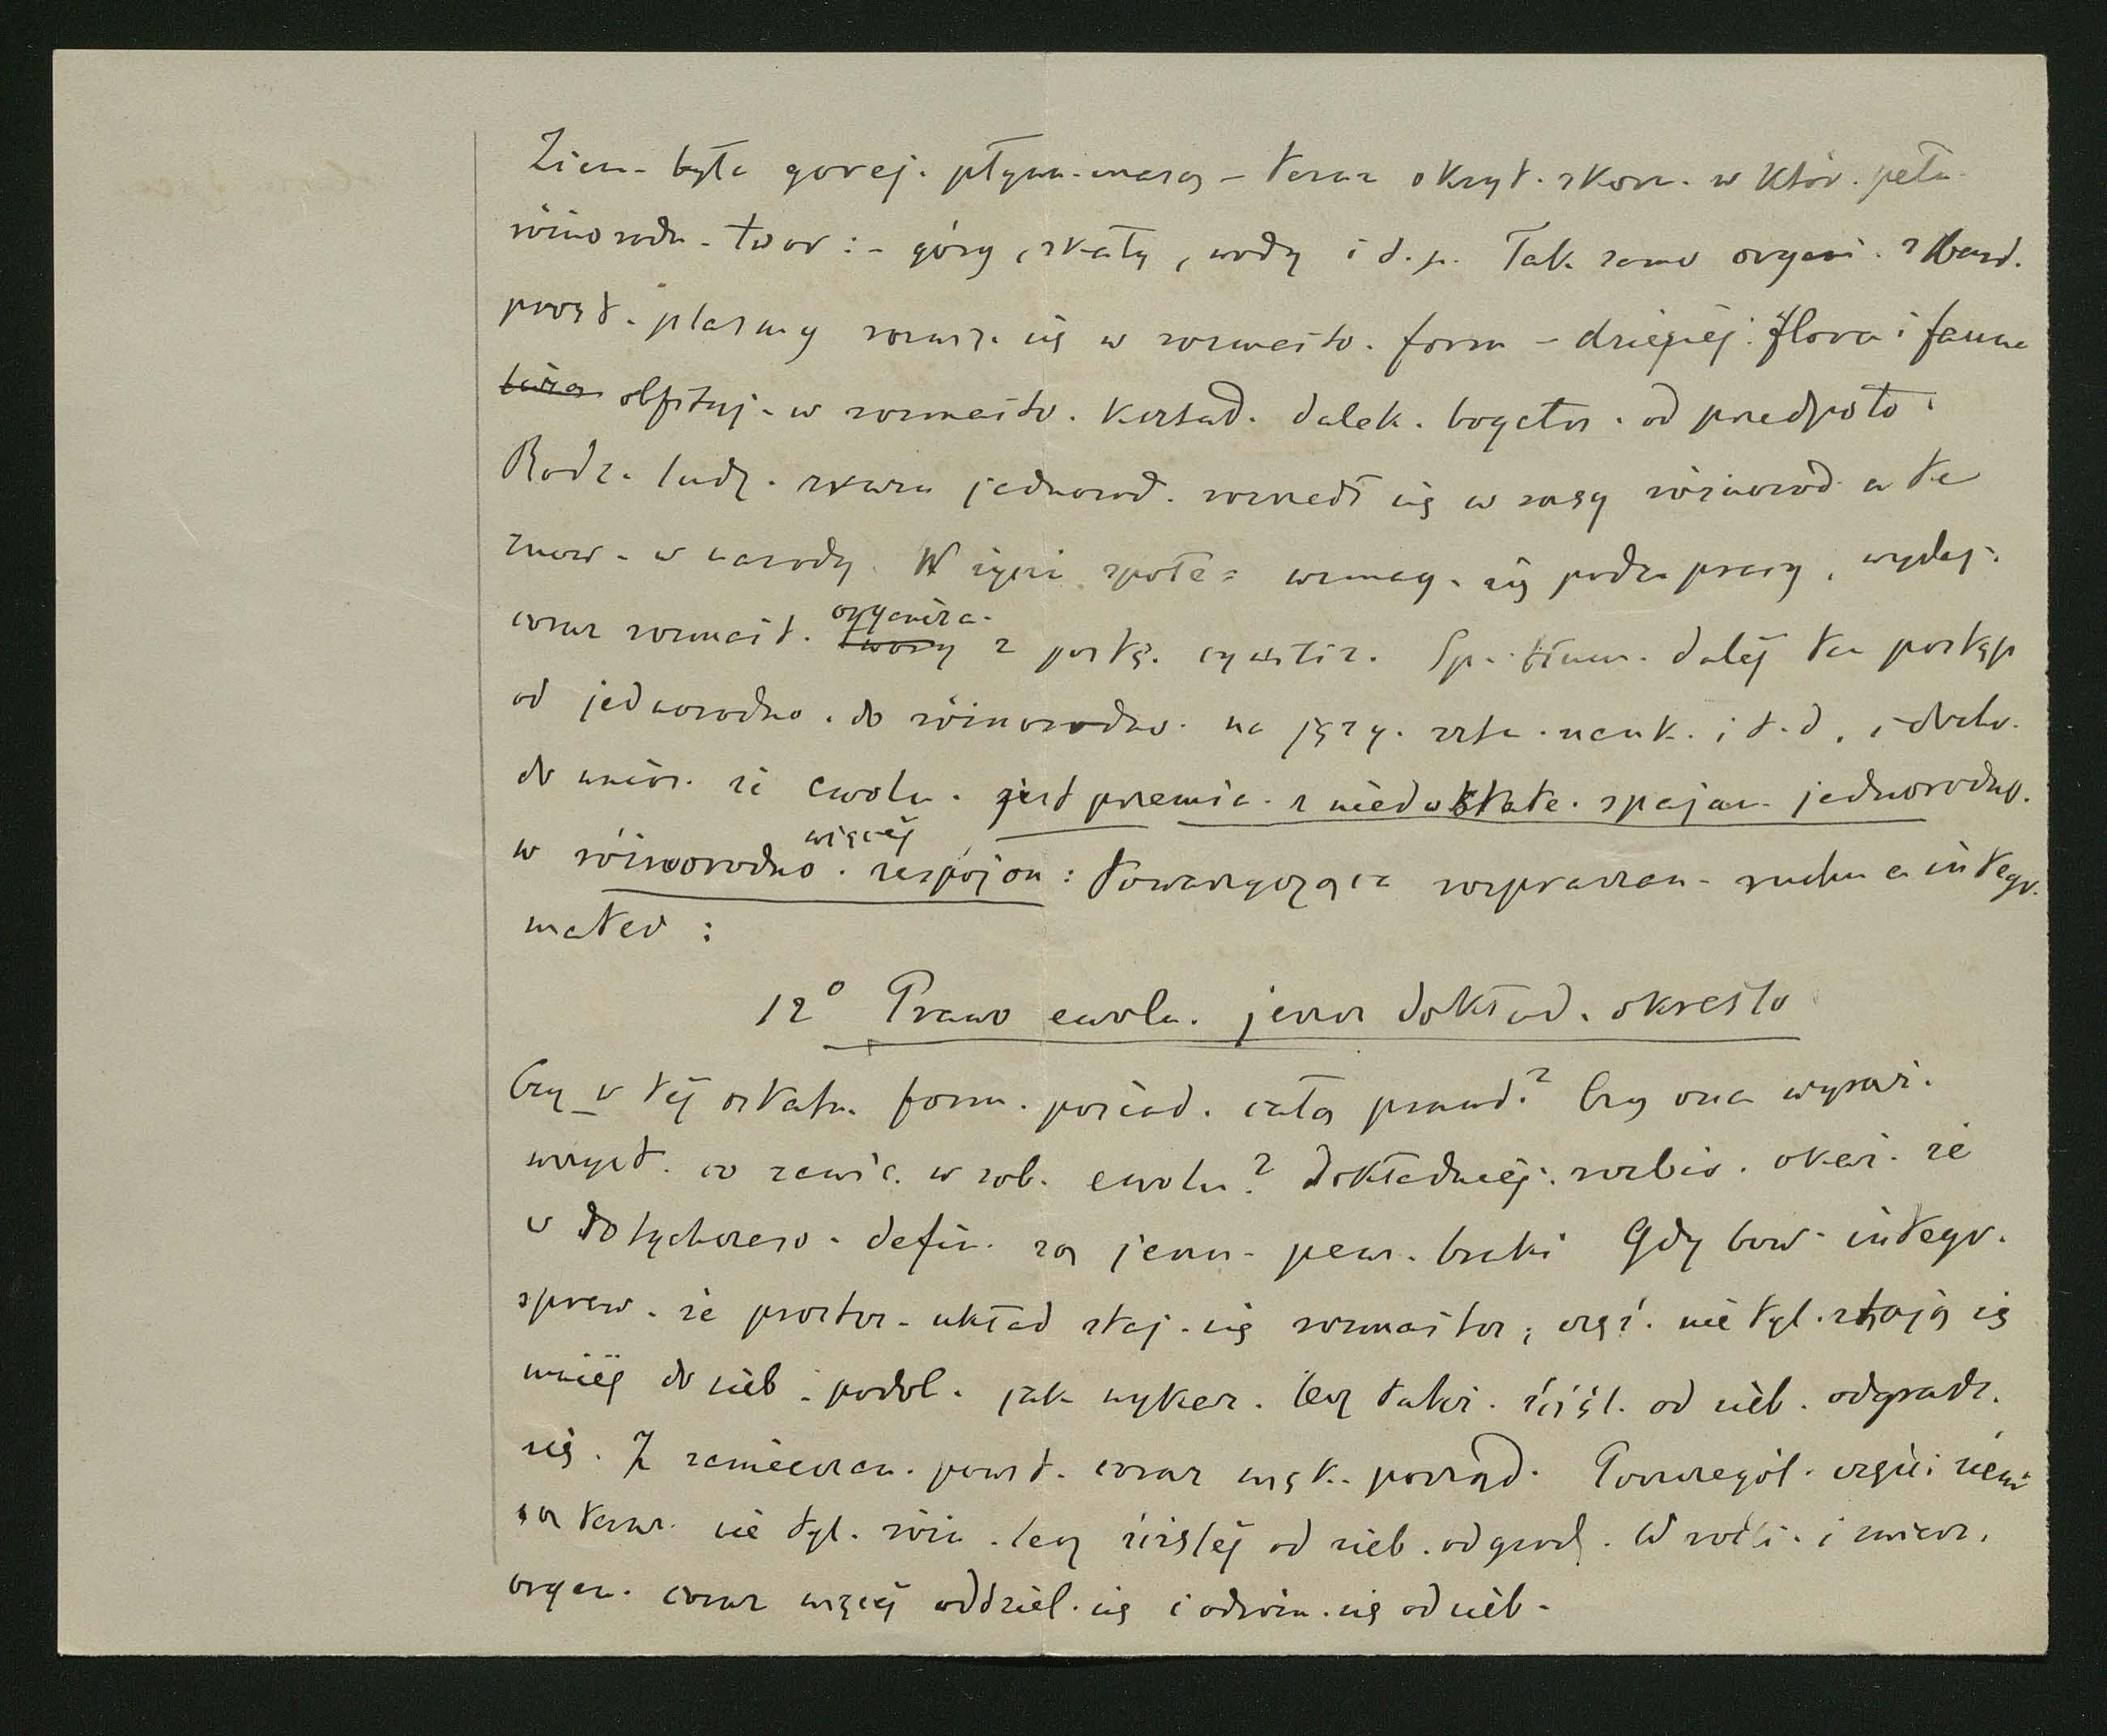 Ziem. była gorej. płynn. masą – teraz okryt. skor. w któr. pełn.
różnorodn. twor: – góry, skały, wody i t.p. Tak samo organi. z bard.
prost. plazmy rozwsz. się w rozmaito. form – dzisiej. flora i fauna
obfituj. w rozmaito. kształ. dalek. bogatsz. od przedpoto.
Rodz. ludz. zrazu jednorod. rozszedł się w rasy różnorod. a te
znow. w narody. W życiu społe. wzmag. się podz. pracy, wydaj.
coraz rozmait. organiza. z postę. cywiliz. Sp. tłum. dalej ten postęp
od jednorodno. do różnorodno. na języ. sztu. nauk. i t.d. i docho.
do wnios. że ewolu. jest przemia. z niedostate. spajan. jednorodno.
w różnorodno. więcej zespojon: towarzysząca rozpraszan. ruchu a integr.
mater:
12° Prawo ewolu. jeszcz dokład. określo
Czy w tej ostatn. form. posiad. całą prawd.? Czy ona wyraż.
wszyst. co zawie. w sob. ewolu? Dokładniej. rozbio. okaż. że
w dotychczaso. defin. są jeszcz. pew. braki Gdy bow. integr.
spraw. że prostsz. układ staj. się rozmaitsz, częś. nie tyl. stają się
mniej do sieb. podob. jak wykaz. lecz takż. ściśl. od sieb. odgradz.
się. Z zamieszan. powst. coraz więk. porząd. Poszczegól. części ziemi
są teraz. nie tyl. różn. lecz ściślej od sieb. odgrodz. W rośli. i zwierz.
organ. coraz więcej oddziel. się i odróżn. się od sieb.